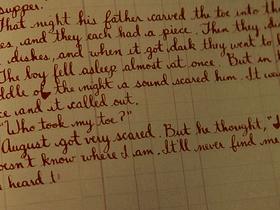 supper.
That night his father carved the toe into th
es, and they each had a piece. Then they
dishes, and when it got dark they went to
The boy fell asleep almost at once. But in
ddle of the night a sound scared him. It w
ce and it called out.
"Who took my toe?"
August got very scared. But he thought, "I
oesn't know where I am. It'll never find me
heard t